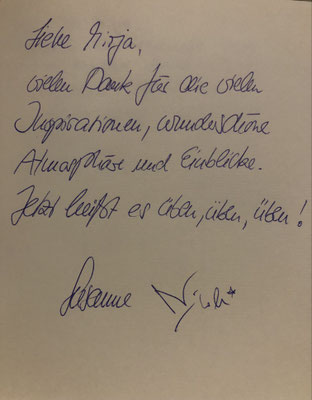 Liebe Mirja,
vielen Dank für die vielen
Inspirationen, wunderschöne
Atmosphäre und Einblicke.
Jetzt heißt es üben, üben, üben!
Susanne